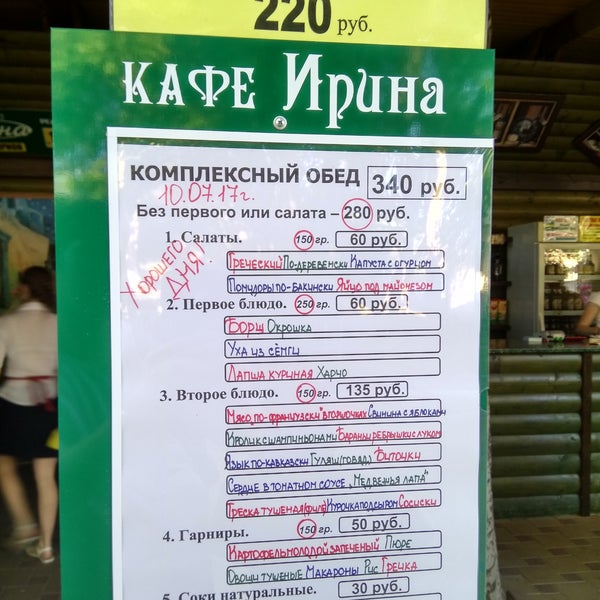 220 руб.
КАФЕ Ирина
КОМПЛЕКСНЫЙ ОБЕД 340 руб.
10.07.17г.
Без первого или салата – 280 руб.
Хорошего дня!
1. Салаты. 150 гр. 60 руб.
Греческий По-деревенски Капуста с огурцом
Помидоры по-бакински Яйцо под майонезом
2. Первое блюдо. 250 гр. 60 руб.
Борщ Окрошка
Уха из сёмги
Лапша куриная Харчо
3. Второе блюдо. 150 гр. 135 руб.
Мясо "по-французски" в горшочках Свинина с яблоками
Кролик с шампиньонами Бараньи ребрышки с луком
Язык по-кавказски Гуляш (говяд.) Биточки
Сердце в томатном соусе „Медвежья лапа"
Треска тушеная (филе) Курочка под сыром Сосиски
4. Гарниры. 150 гр. 50 руб.
Картофель молодой запеченый Пюре
Овощи тушеные Макароны Рис Гречка
5. Соки натуральные. 30 руб.